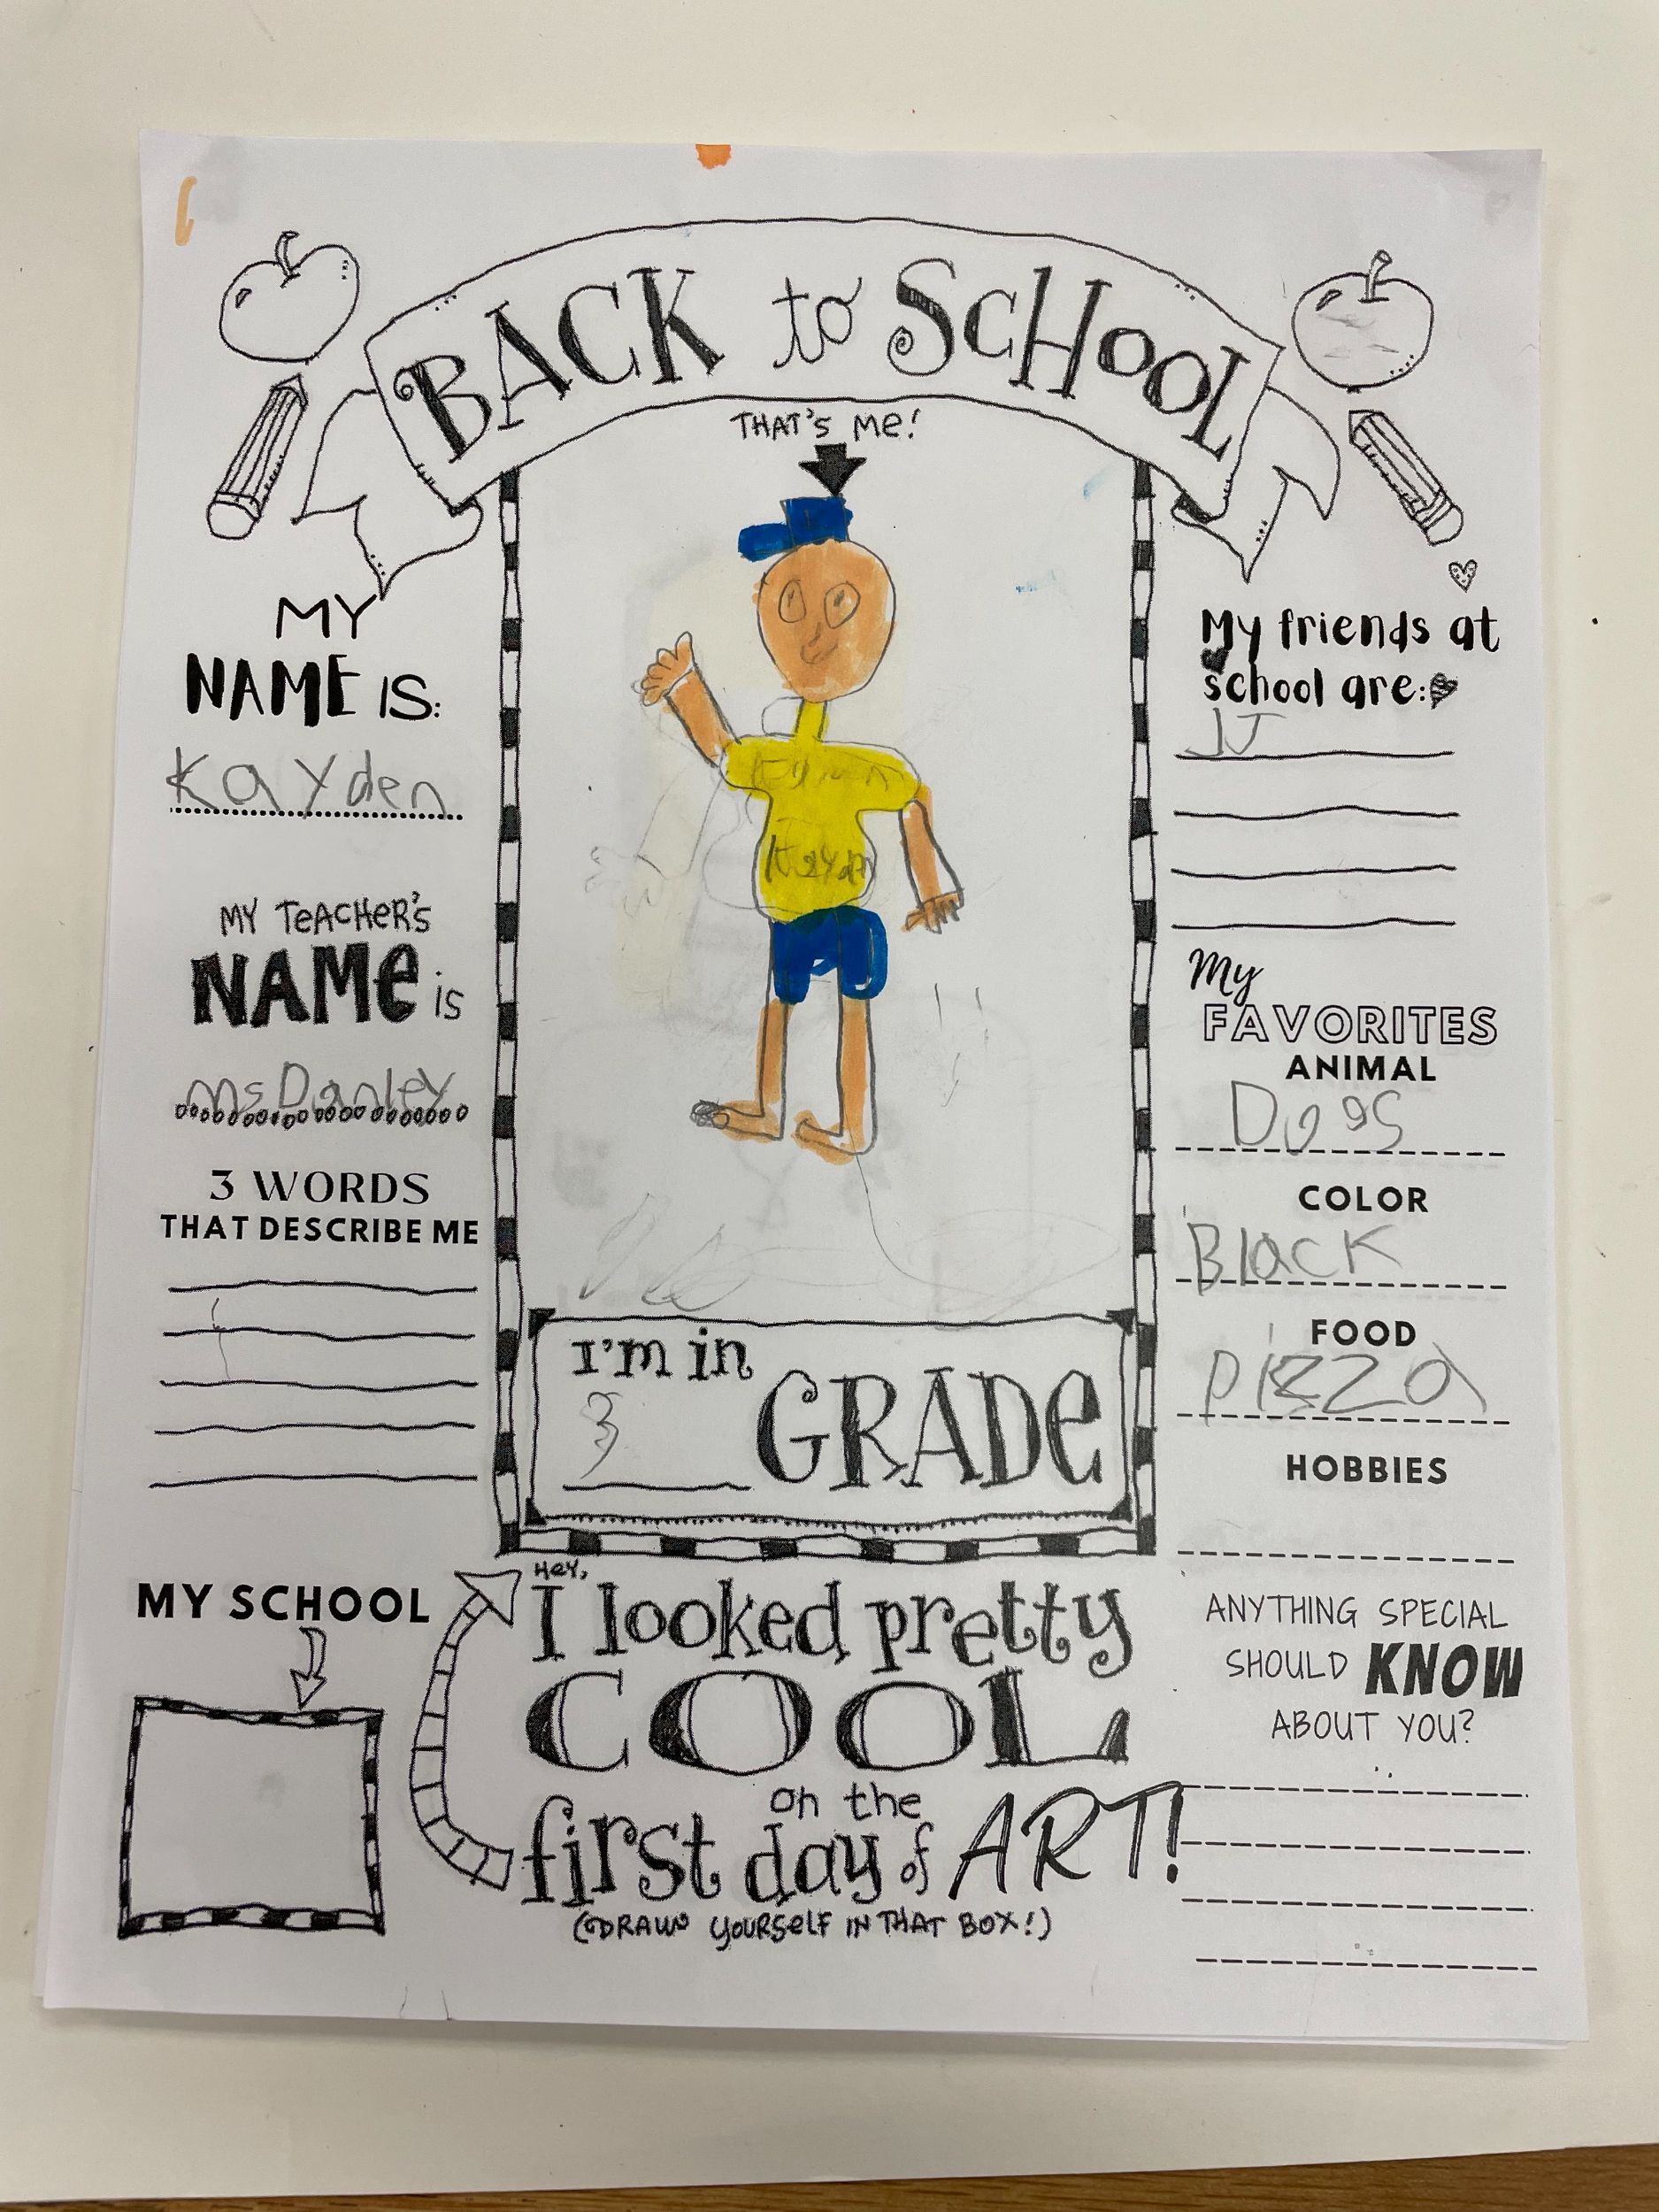 BACK to SCHOOL
THAT'S Me!
MY
NAME IS:
Kayden
MY TeACHeR'S
NAMe is
Ms Danley
3 WORDS
THAT DESCRIBE ME
MY SCHOOL
Kayden
I'm in
3 GRADe
HeY,
I looked pretty
COOL
on the
first day of ART!
(DRAW YOURSELF IN THAT BOX!)
My friends at
school are:
JJ
My
FAVORITES
ANIMAL
Dogs
COLOR
Black
FOOD
Pizza
HOBBIES
ANYTHING SPECIAL
SHOULD KNOW
ABOUT YOU?